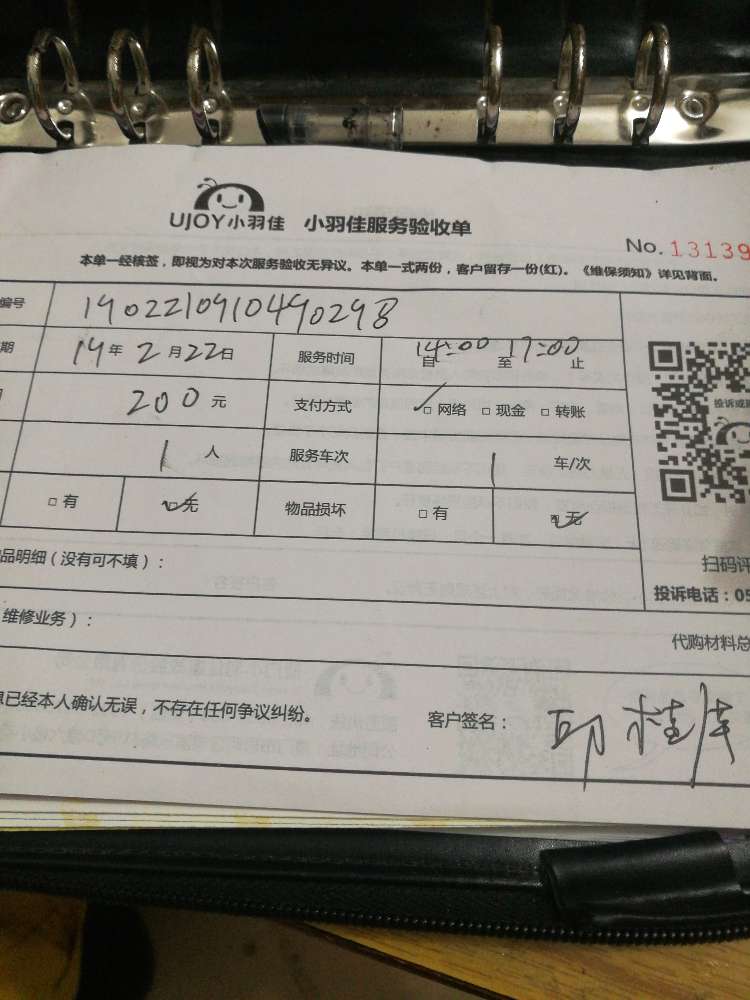 UJOY小羽佳 小羽佳服务验收单
No. 13139
本单一经核签，即视为对本次服务验收无异议。本单一式两份，客户留存一份(红)。《维保须知》详见背面。
编号 1902210910490298
期 19年2月22日 服务时间 自14:00至17:00止
200元 支付方式 ✓□网络 □现金 □转账
1人 服务车次 1车/次
□有 ☑无 物品损坏 □有 ☑无
投诉或
扫码评
品明细（没有可不填）：
投诉电话：05
维修业务）：
代购材料总
息已经本人确认无误，不存在任何争议纠纷。 客户签名：邱桂